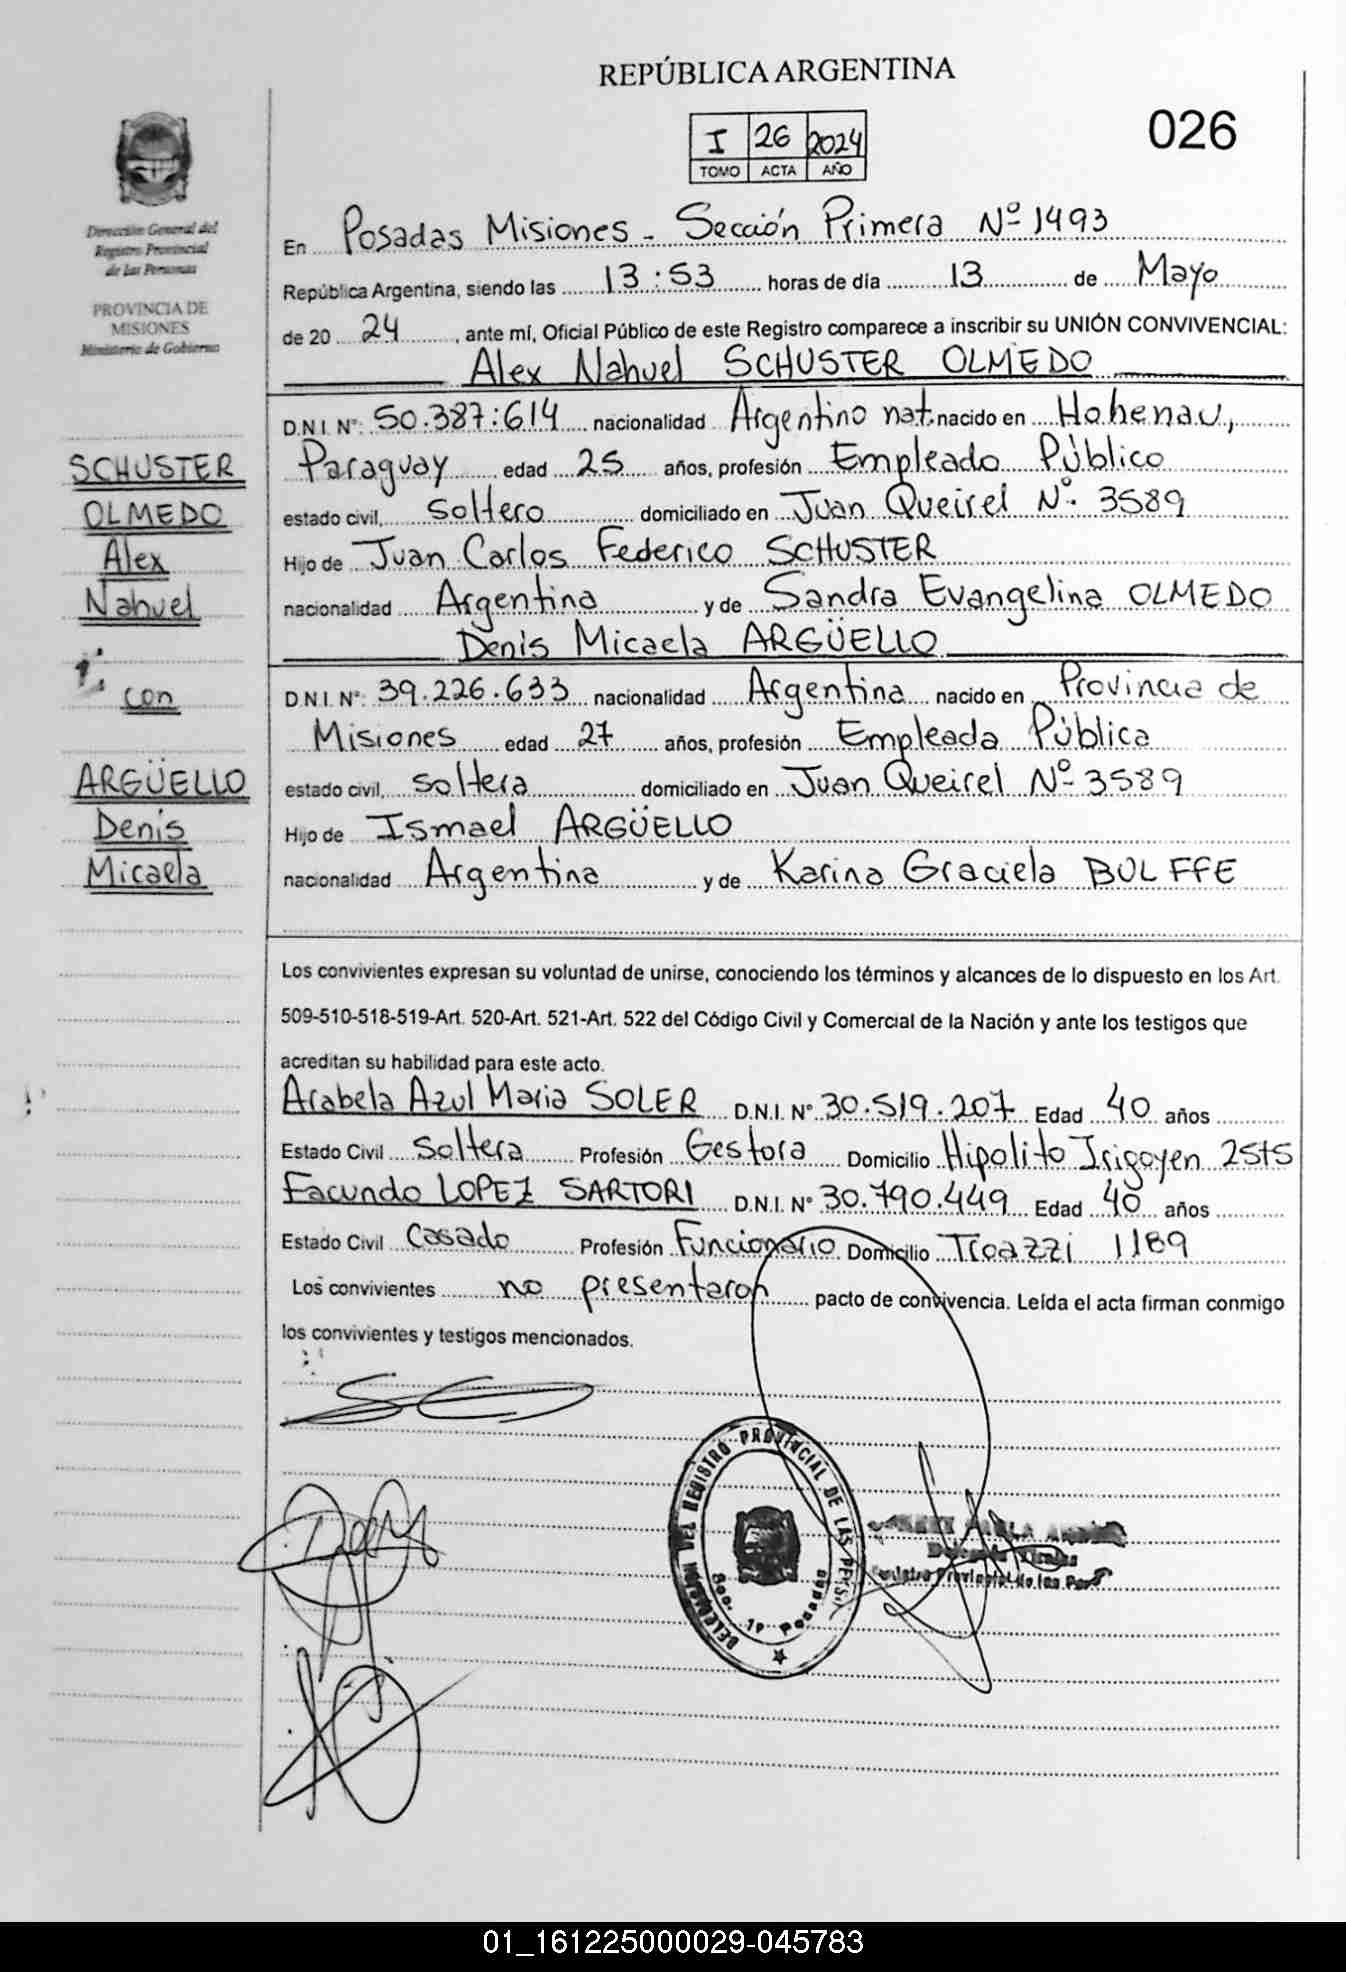 REPÚBLICA ARGENTINA
026
I 26 2024
TOMO ACTA AÑO
Dirección General del
Registro Provincial
de las Personas
PROVINCIA DE
MISIONES
Ministerio de Gobierno
En Posadas Misiones - Sección Primera Nº 1493
República Argentina, siendo las 13:53 horas de día 13 de Mayo
de 20 24, ante mí, Oficial Público de este Registro comparece a inscribir su UNIÓN CONVIVENCIAL:
Alex Nahuel SCHUSTER OLMEDO
D.N.I. Nº: 50.387.614 nacionalidad Argentino nat. nacido en Hohenau,
Paraguay edad 25 años, profesión Empleado Público
estado civil, soltero domiciliado en Juan Queirel Nº 3589
Hijo de Juan Carlos Federico SCHUSTER
nacionalidad Argentina y de Sandra Evangelina OLMEDO
Denis Micaela ARGÜELLO
D.N.I. Nº: 39.226.633 nacionalidad Argentina nacido en Provincia de
Misiones edad 27 años, profesión Empleada Pública
estado civil, soltera domiciliado en Juan Queirel Nº 3589
Hijo de Ismael ARGÜELLO
nacionalidad Argentina y de Karina Graciela BULFFE
SCHUSTER
OLMEDO
Alex
Nahuel
con
ARGÜELLO
Denis
Micaela
Los convivientes expresan su voluntad de unirse, conociendo los términos y alcances de lo dispuesto en los Art.
509-510-518-519-Art. 520-Art. 521-Art. 522 del Código Civil y Comercial de la Nación y ante los testigos que
acreditan su habilidad para este acto.
Arabela Azul Maria SOLER D.N.I. Nº 30.519.207 Edad 40 años
Estado Civil soltera Profesión Gestora Domicilio Hipolito Irigoyen 2515
Facundo LOPEZ SARTORI D.N.I. Nº 30.790.449 Edad 40 años
Estado Civil Casado Profesión Funcionario Domicilio Troazzi 1189
Los convivientes no presentaron pacto de convivencia. Leída el acta firman conmigo
los convivientes y testigos mencionados.
DELEGACIÓN DEL REGISTRO PROVINCIAL DE LAS PERS.
Sec. 1º Posadas
Registro Provincial de las Pers
01_161225000029-045783